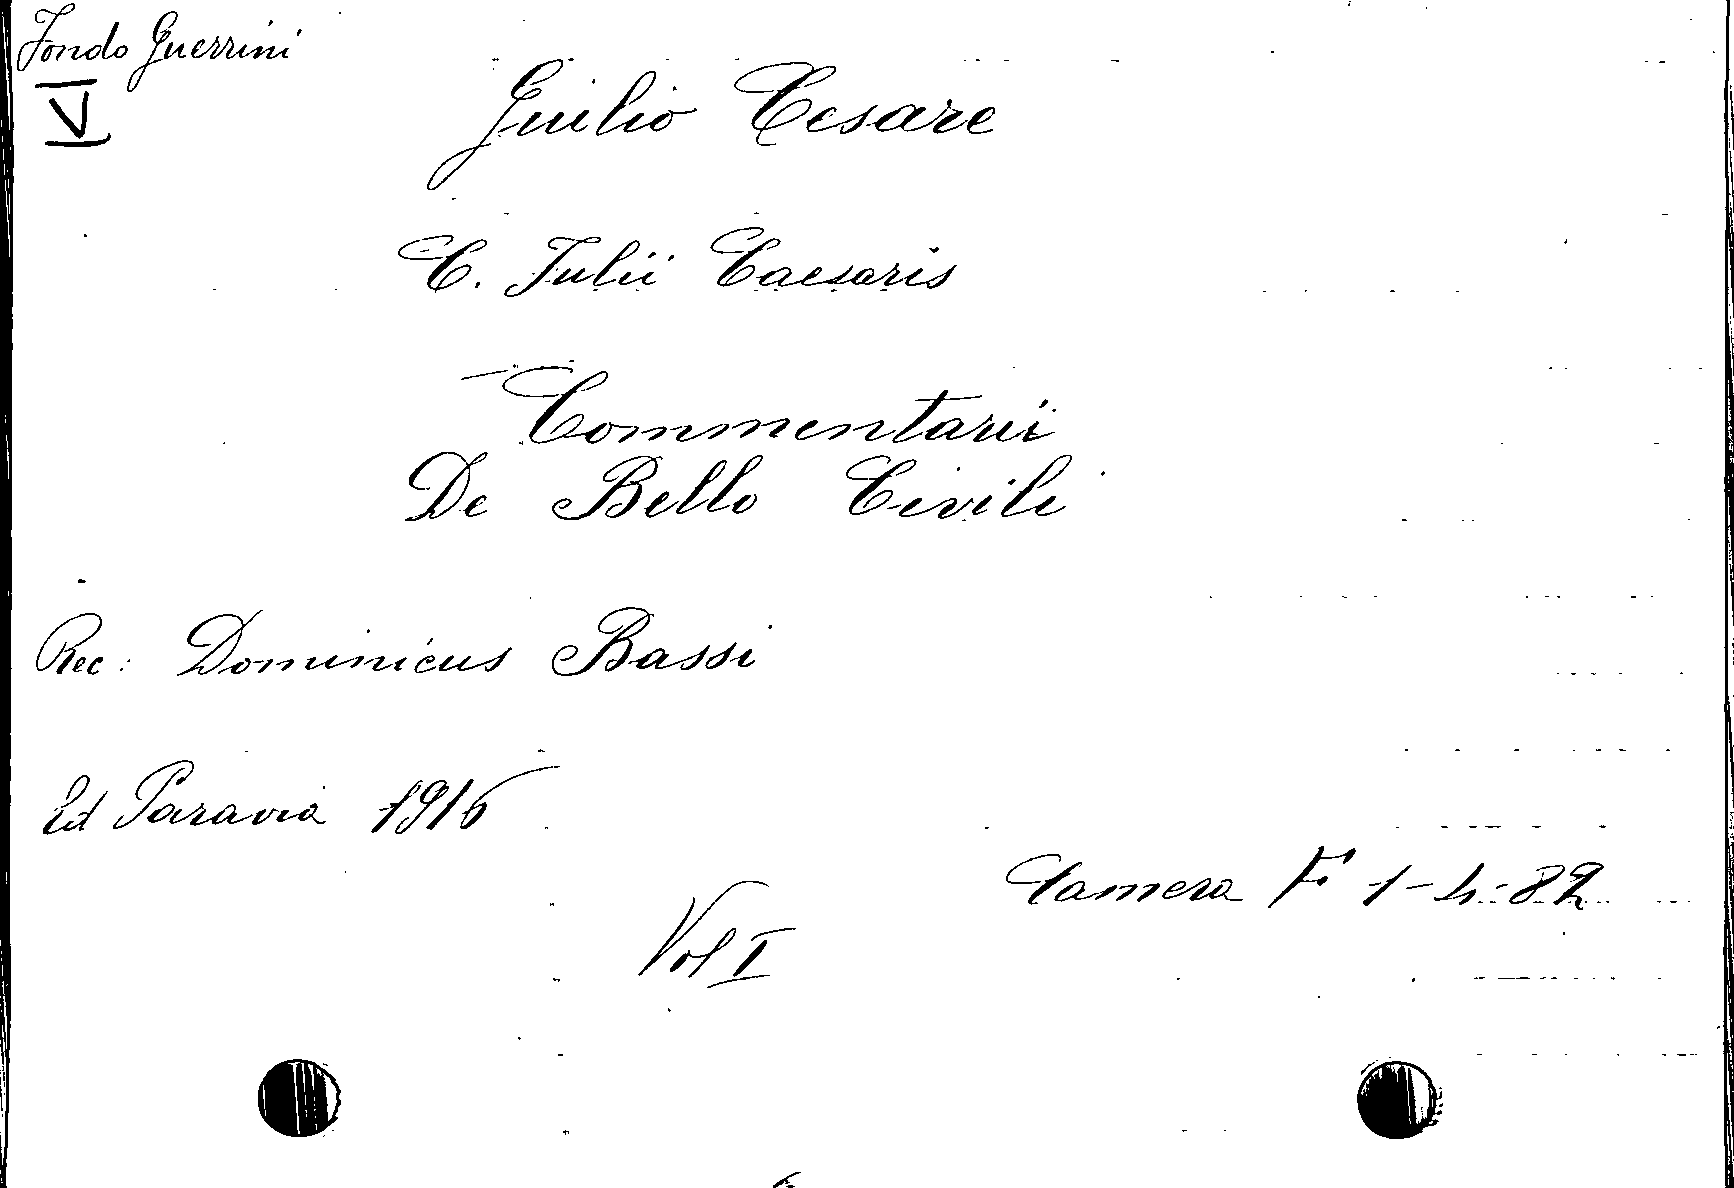 Fondo Guerrini
V
Giulio Cesare
C. Julii Caesaris
Commentarii
De Bello Civili
Rec: Dominicus Bassi
Ed Paravia 1916
Camera F 1-4-82
Vol I